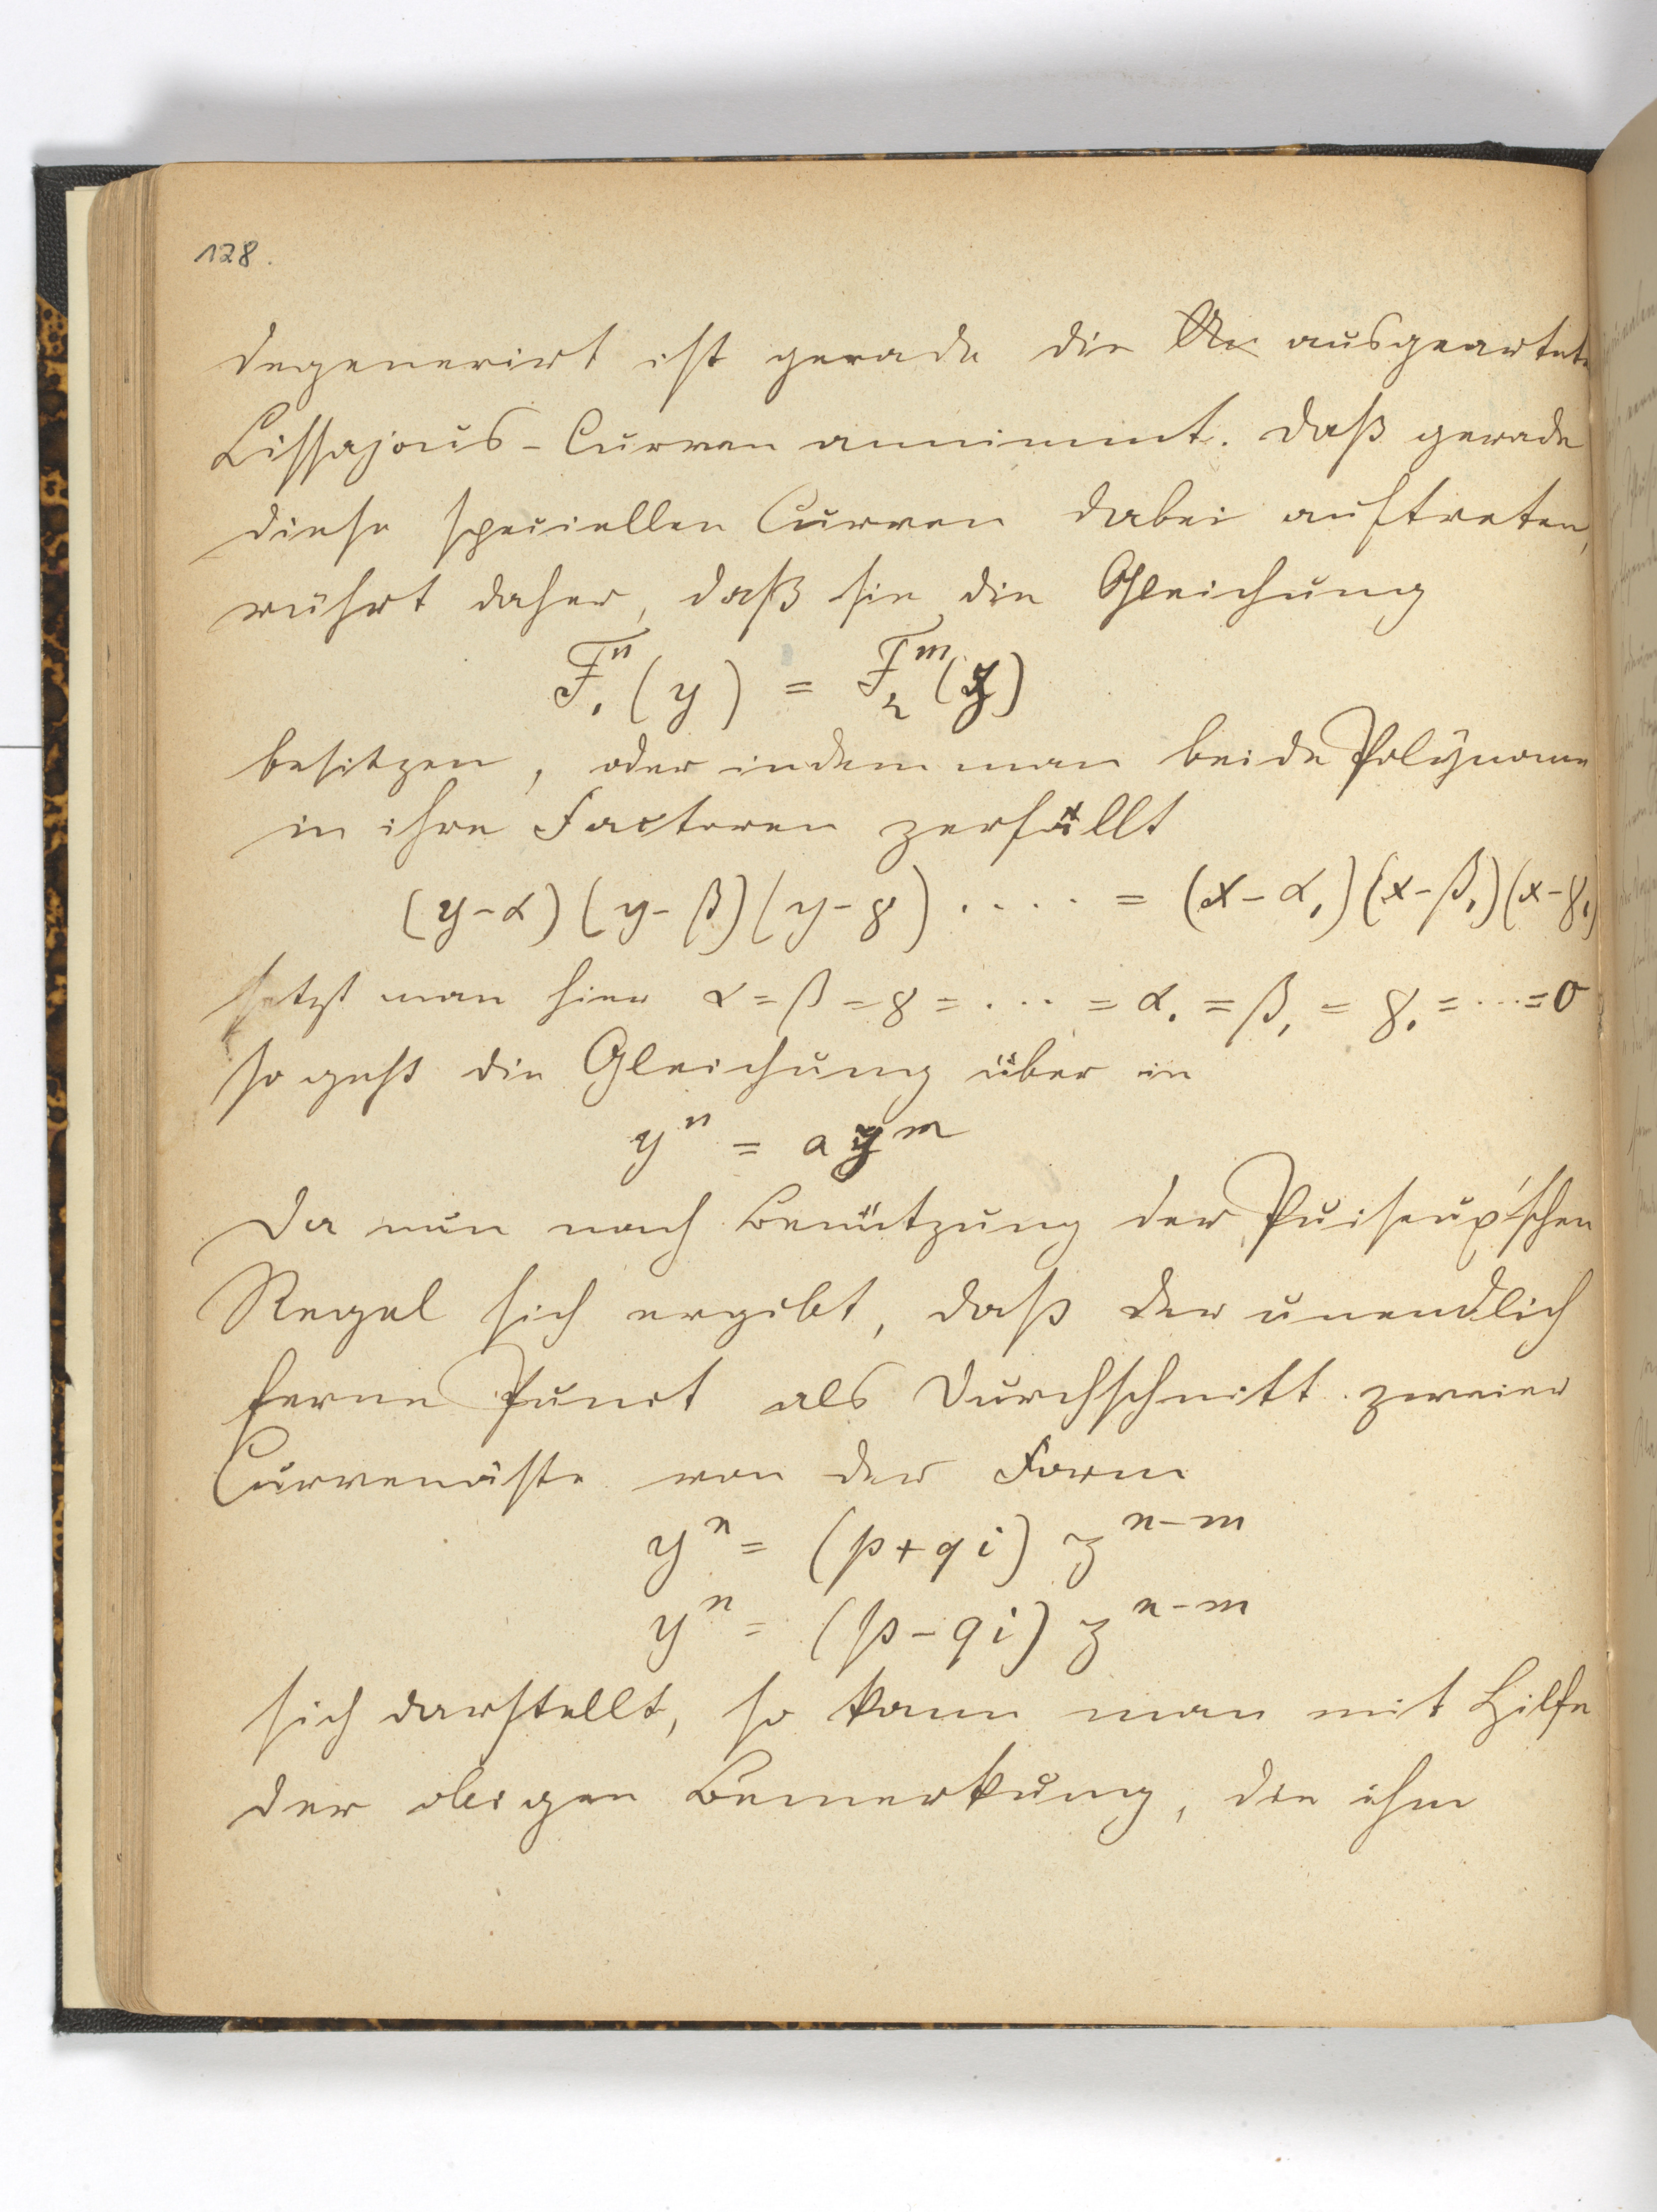 128.
degenerirt ist gerade die ausgeartete
Lissajous-Curven annimmt. Daß gerade
diese speciellen Curven dabei auftreten,
rührt daher, daß sie die Gleichung
F₁ⁿ(y) = F₂ᵐ(y)
besitzen, oder indem man beide Polynome
in ihre Factoren zerfällt
(y-α)(y-β)(y-γ)..... = (x-α₁)(x-β₁)(x-γ₁)
setzt man hier α=β=γ=....=α₁=β₁=γ₁=...=0
so geht die Gleichung über in
yⁿ = ayᵐ
Da nun nach Benützung der Puiseux'schen
Regel sich ergibt, daß der unendlich
ferne Punct als Durchschnitt zweier
Curvenäste von der Form
yⁿ = (p+qi) zⁿ⁻ᵐ
yⁿ = (p-qi) zⁿ⁻ᵐ
sich darstellt, so kann man mit Hilfe
der obigen Bemerkung, die ihm